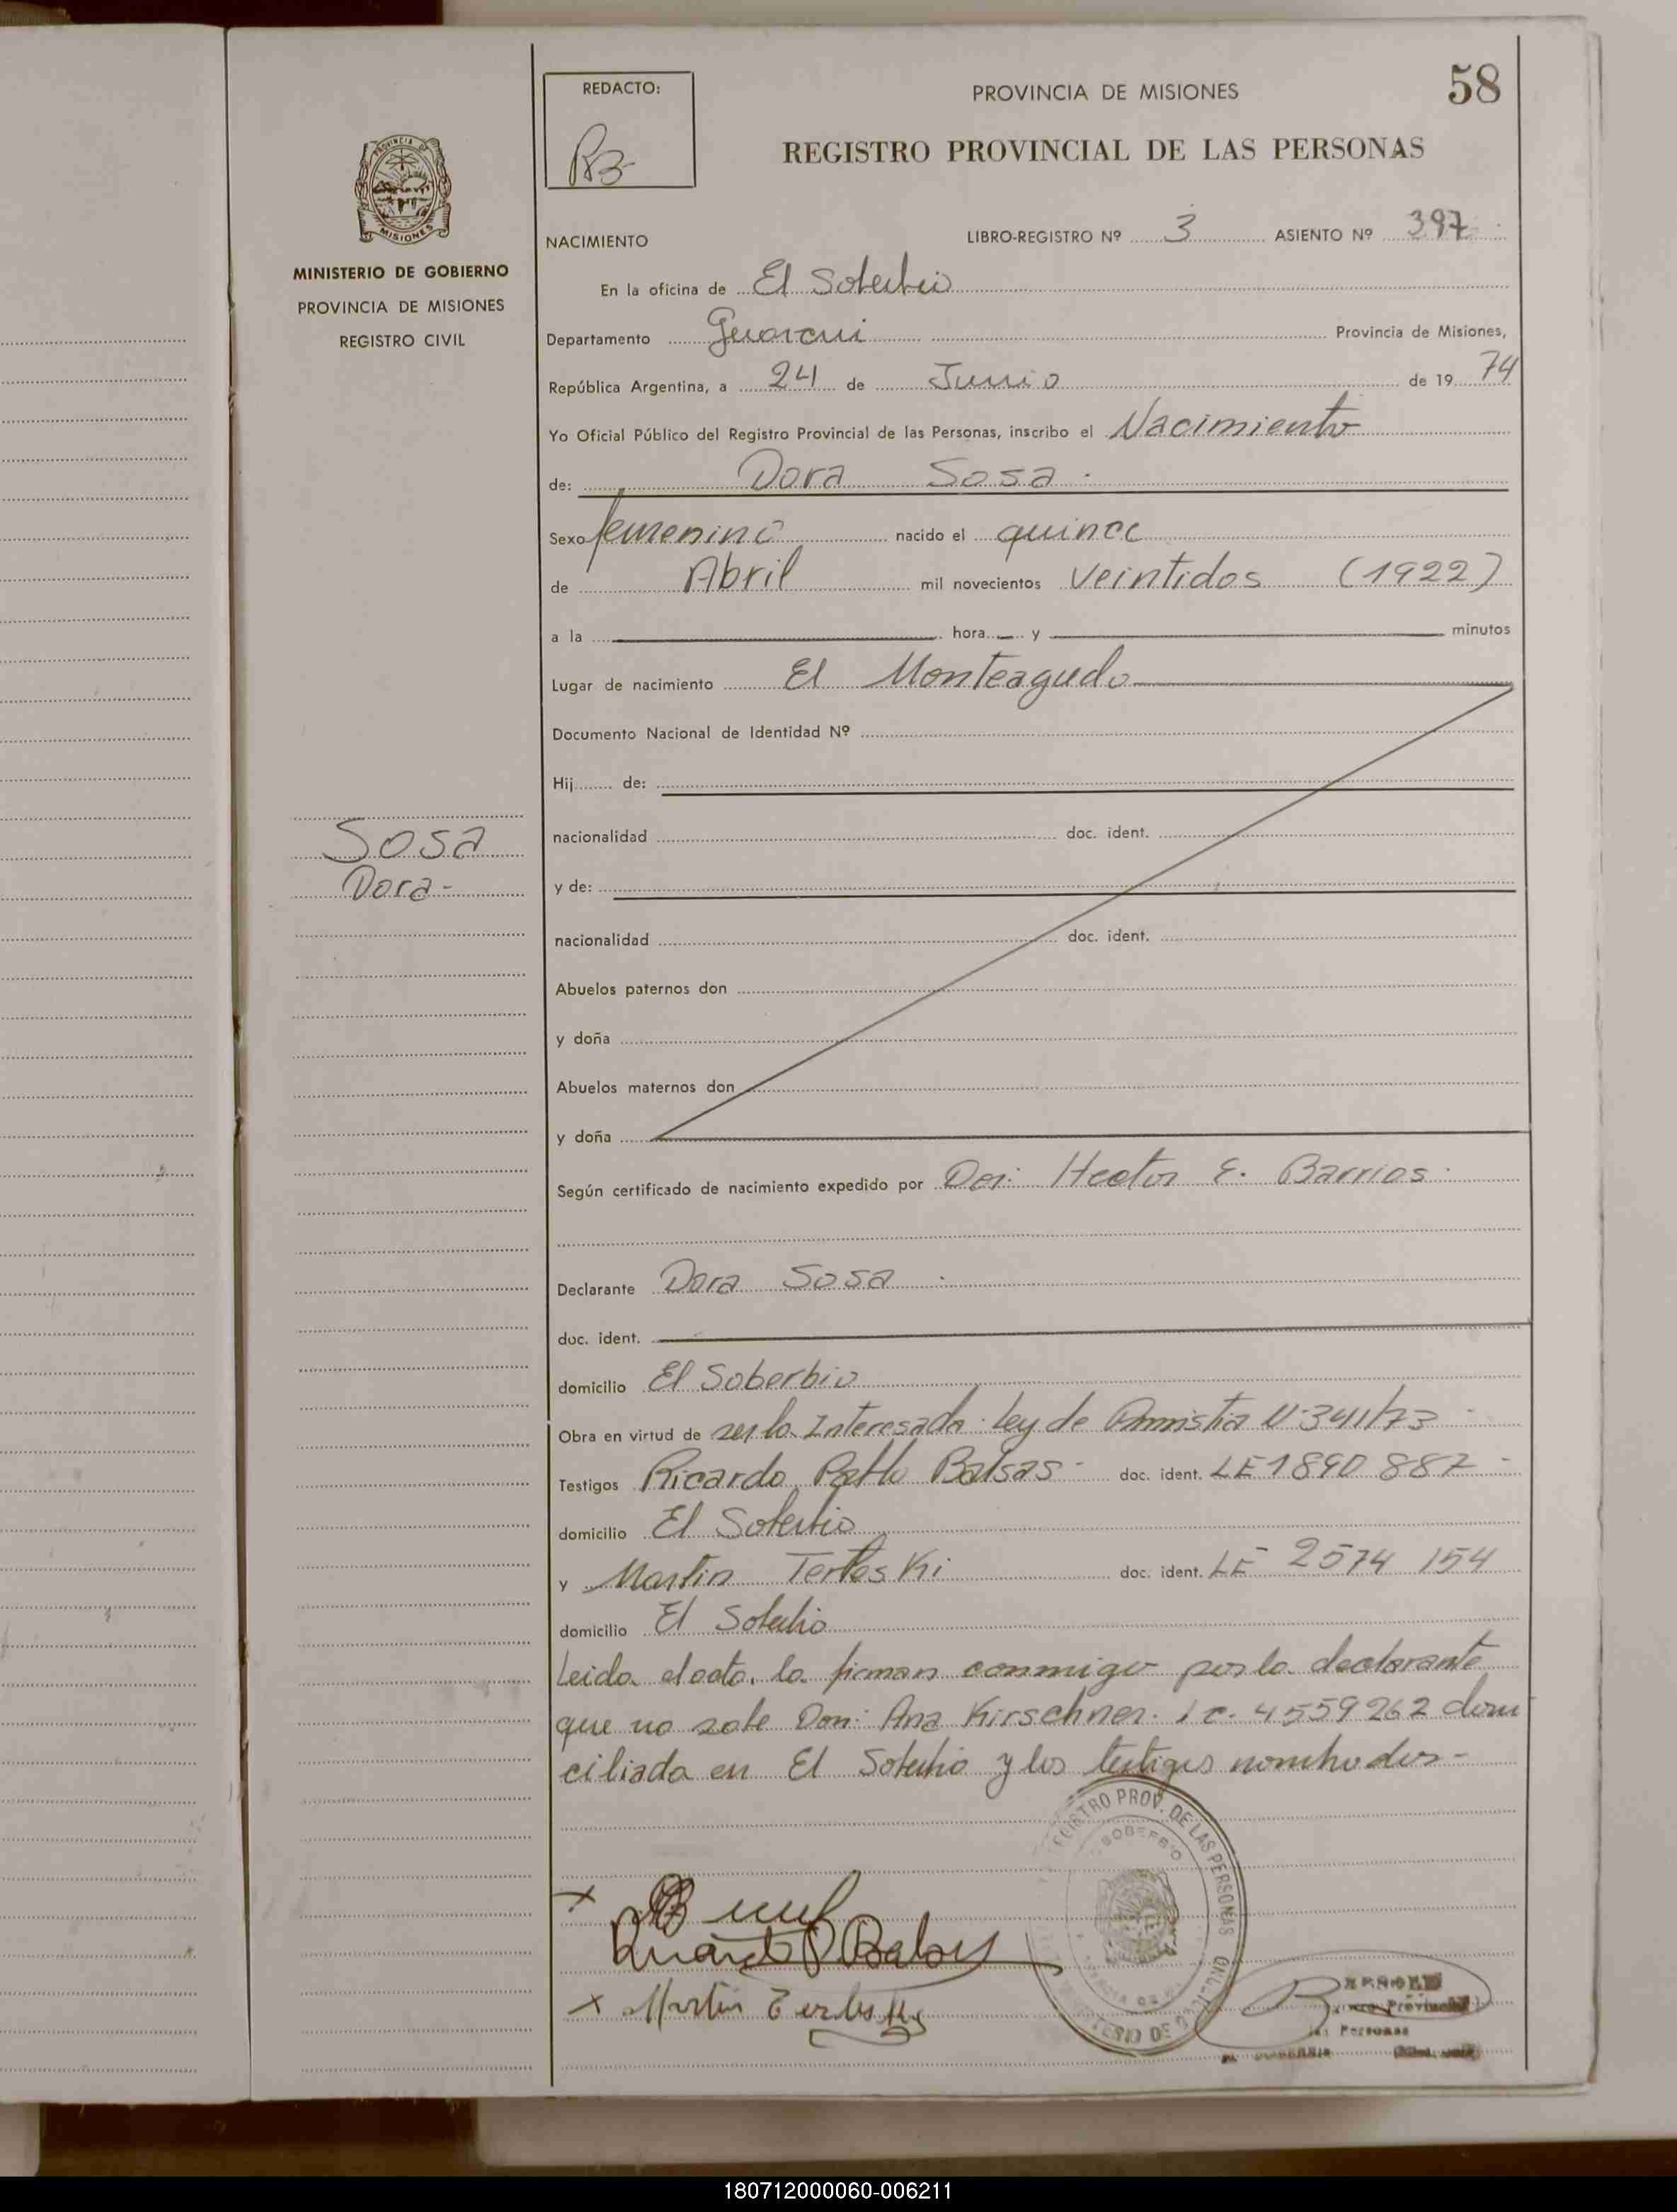 REDACTO:
PROVINCIA DE MISIONES
58
REGISTRO PROVINCIAL DE LAS PERSONAS
PROVINCIA DE
MISIONES
MINISTERIO DE GOBIERNO
PROVINCIA DE MISIONES
REGISTRO CIVIL
NACIMIENTO
LIBRO-REGISTRO Nº 3 ASIENTO Nº 397
En la oficina de El Soberbio
Departamento Guarani Provincia de Misiones,
República Argentina, a 24 de Junio de 19 74
Yo Oficial Público del Registro Provincial de las Personas, inscribo el Nacimiento
de: Dora Sosa
Sexo femenino nacido el quince
de Abril mil novecientos veintidos (1922)
a la hora y minutos
Lugar de nacimiento El Monteagudo
Documento Nacional de Identidad Nº
Hij de:
nacionalidad doc. ident.
Sosa
Dora-
y de:
nacionalidad doc. ident.
Abuelos paternos don
y doña
Abuelos maternos don
y doña
Según certificado de nacimiento expedido por Don: Hector E. Barrios
Declarante Dora Sosa
doc. ident.
domicilio El Soberbio
Obra en virtud de ser la Interesada. Ley de Amnistia Nº 341/73
Testigos Ricardo Pablo Balsas doc. ident. LE 1890 887
domicilio El Soberbio
y Martin Terlaski doc. ident. LE 2574 154
domicilio El Soberbio
Leida el acta, la firman conmigo por la declarante
que no sabe Don: Ana Kirschner. l c. 4559262 domi
ciliada en El Soberbio y los testigos nombrados-
REGISTRO PROV. DE LAS PERSONAS
SOBERBIO
Ricardo P Balsas
x Martin
Personas
180712000060-006211